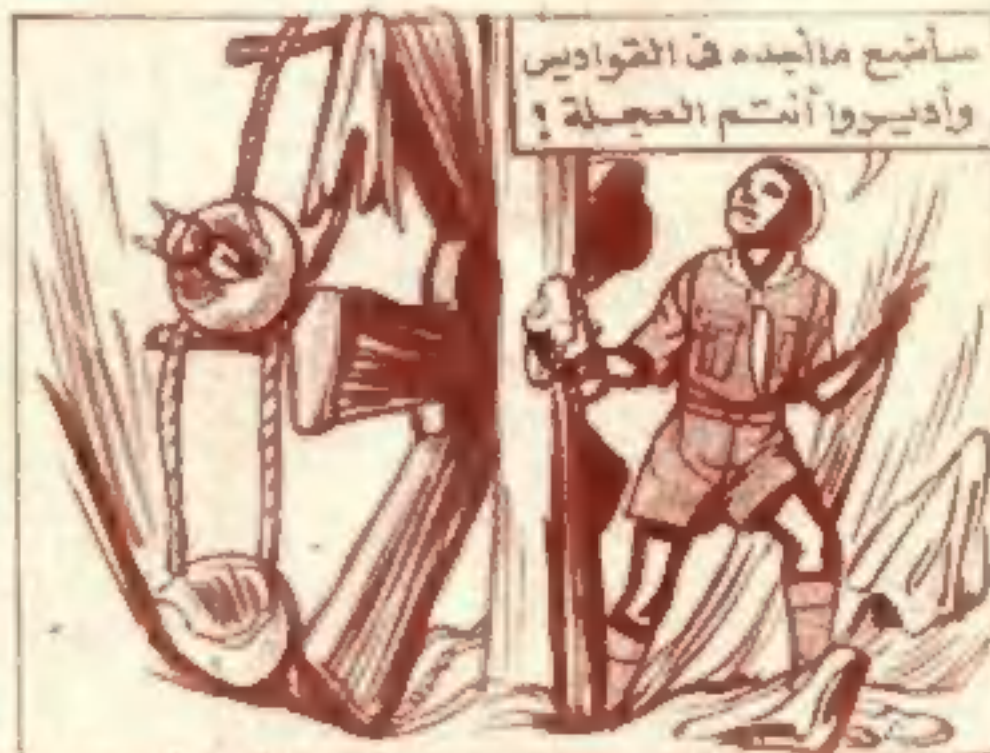 سأضع ماأجده فى القواديس
وأديروا أنتم العجلة !